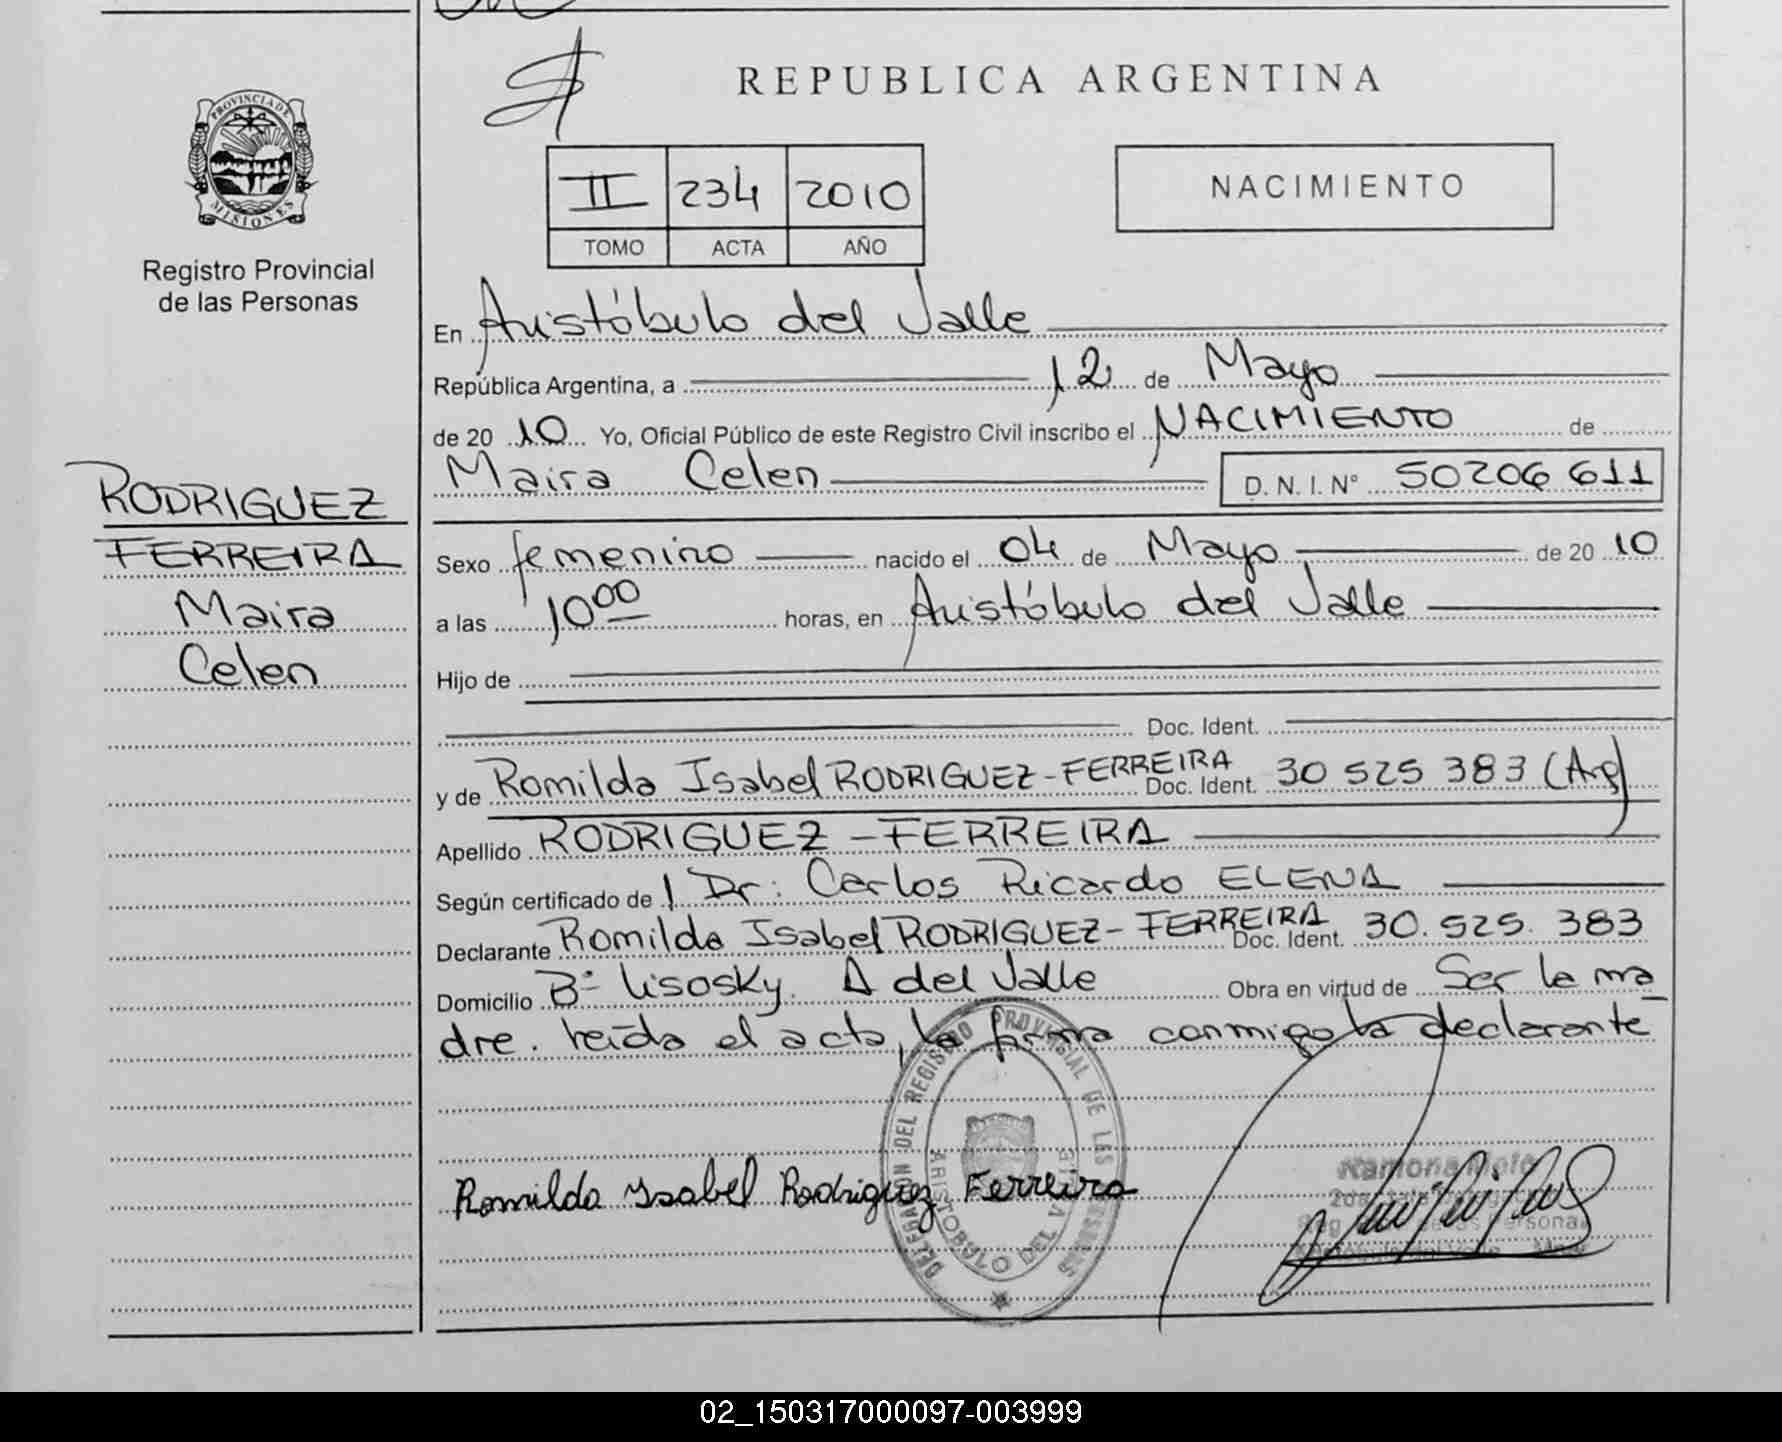 REPUBLICA ARGENTINA
PROVINCIA DE MISIONES
Registro Provincial
de las Personas
II 234 2010
TOMO ACTA AÑO
NACIMIENTO
RODRIGUEZ
FERREIRA
Maira
Celen
En Aristóbulo del Valle
República Argentina, a 12 de Mayo
de 20 10 Yo, Oficial Público de este Registro Civil inscribo el NACIMIENTO de
Maira Celen D. N. I. N° 50206 611
Sexo femenino nacido el 04 de Mayo de 20 10
a las 10 00 horas, en Aristóbulo del Valle
Hijo de
Doc. Ident.
y de Romilda Isabel RODRIGUEZ-FERREIRA Doc. Ident. 30 525 383 (Arg)
Apellido RODRIGUEZ-FERREIRA
Según certificado de l Dr: Carlos Ricardo ELENA
Declarante Romilda Isabel RODRIGUEZ-FERREIRA Doc. Ident. 30.525.383
Domicilio B° Lisosky. A del Valle Obra en virtud de Ser la ma
dre. Leída el acta, la firma conmigo la declarante
DELEGACION DEL REGISTRO PROVINCIAL DE LAS PERSONAS
ARISTOBULO DEL VALLE
Romilda Ysabel Rodriguez Ferreira
Ramona
02_150317000097-003999